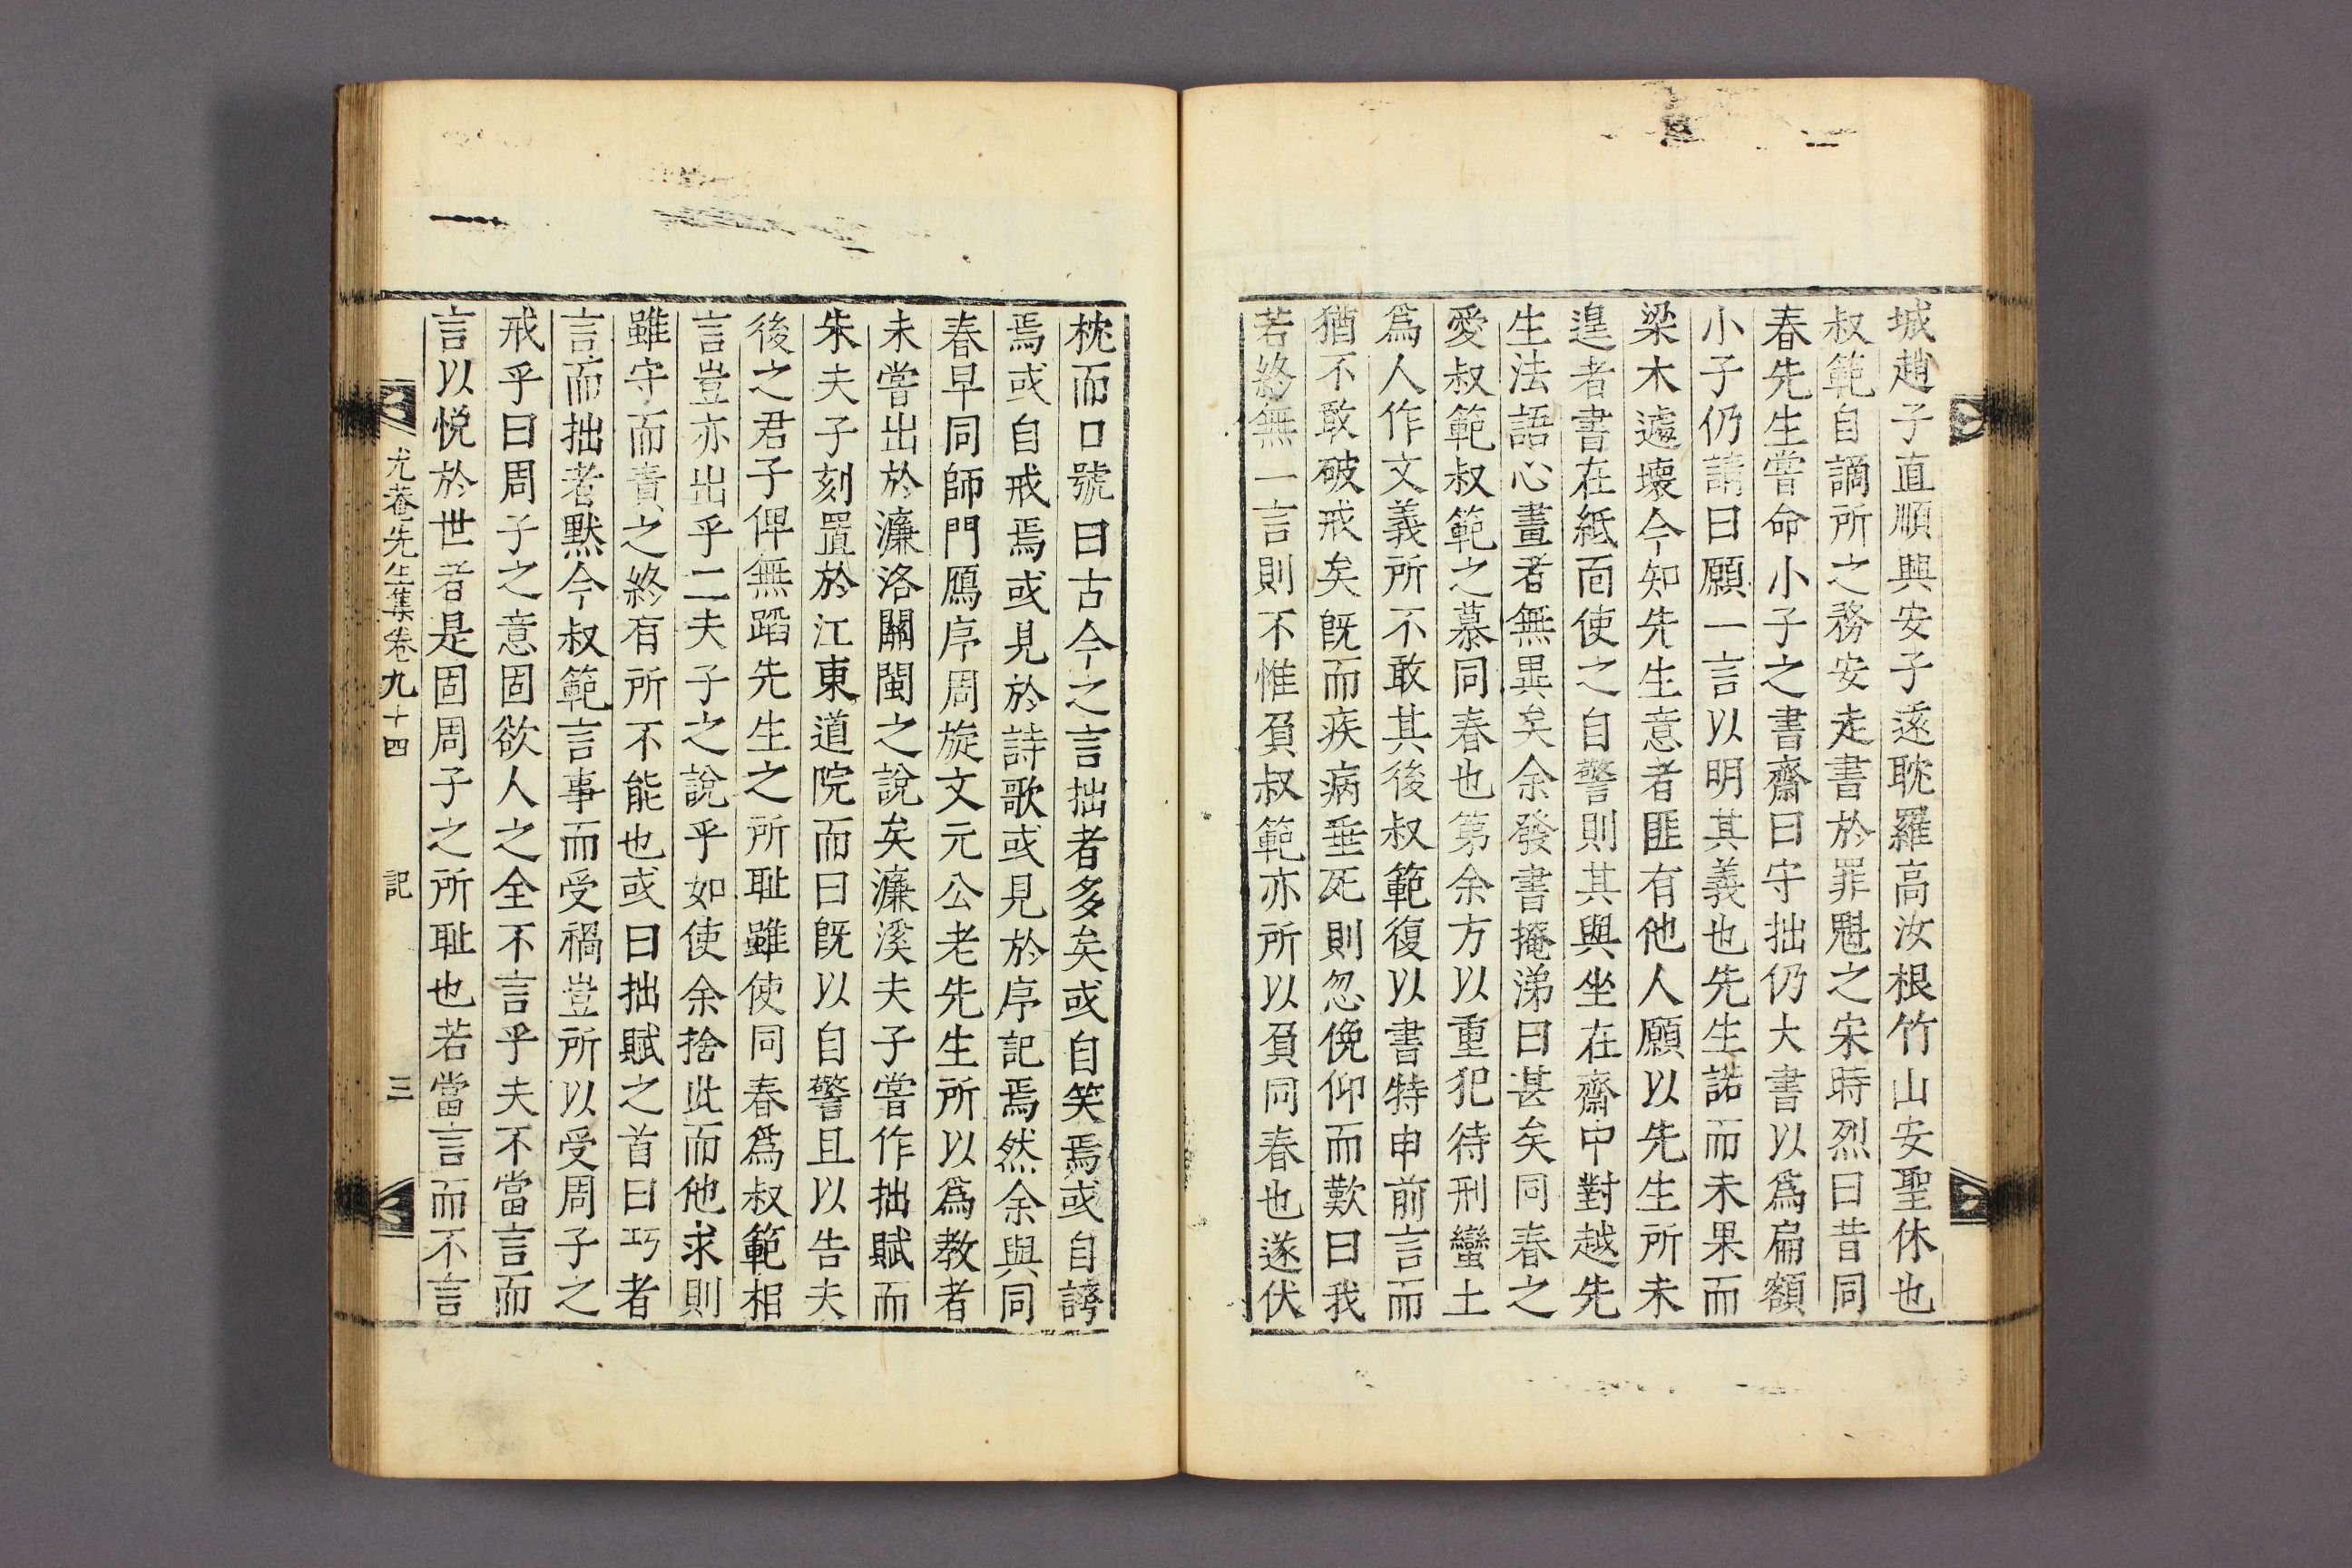 城趙子直順興安子遜耽羅高汝根竹山安聖休也
叔範自謫所之務安走書於罪魁之宋時烈曰昔同
春先生嘗命小子之書齋曰守拙仍大書以爲扁額
小子仍請曰願一言以明其義也先生諾而未果而
梁木遽壞今知先生意者匪有他人願以先生所未
遑者書在紙面使之自警則其與坐在齋中對越先
生法語心畫者無異矣余發書掩涕曰甚矣同春之
愛叔範叔範之慕同春也第余方以重犯待刑蠻土
爲人作文義所不敢其後叔範復以書特申前言而
猶不敢破戒矣旣而疾病垂死則忽俛仰而歎曰我
若終無一言則不惟負叔範亦所以負同春也遂伏
枕而口號曰古今之言拙者多矣或自笑焉或自謗
焉或自戒焉或見於詩歌或見於序記焉然余與同
春早同師門鴈序周旋文元公老先生所以爲教者
未嘗出於濂洛關閩之說矣濂溪夫子嘗作拙賦而
朱夫子刻置於江東道院而曰旣以自警且以告夫
後之君子俾無蹈先生之所耻雖使同春爲叔範相
言豈亦出乎二夫子之說乎如使余捨此而他求則
雖守而責之終有所不能也或曰拙賦之首曰巧者
言而拙者默今叔範言事而受禍豈所以受周子之
戒乎曰周子之意固欲人之全不言乎夫不當言而
言以悅於世者是固周子之所耻也若當言而不言
尤菴先生集卷九十四 記 三